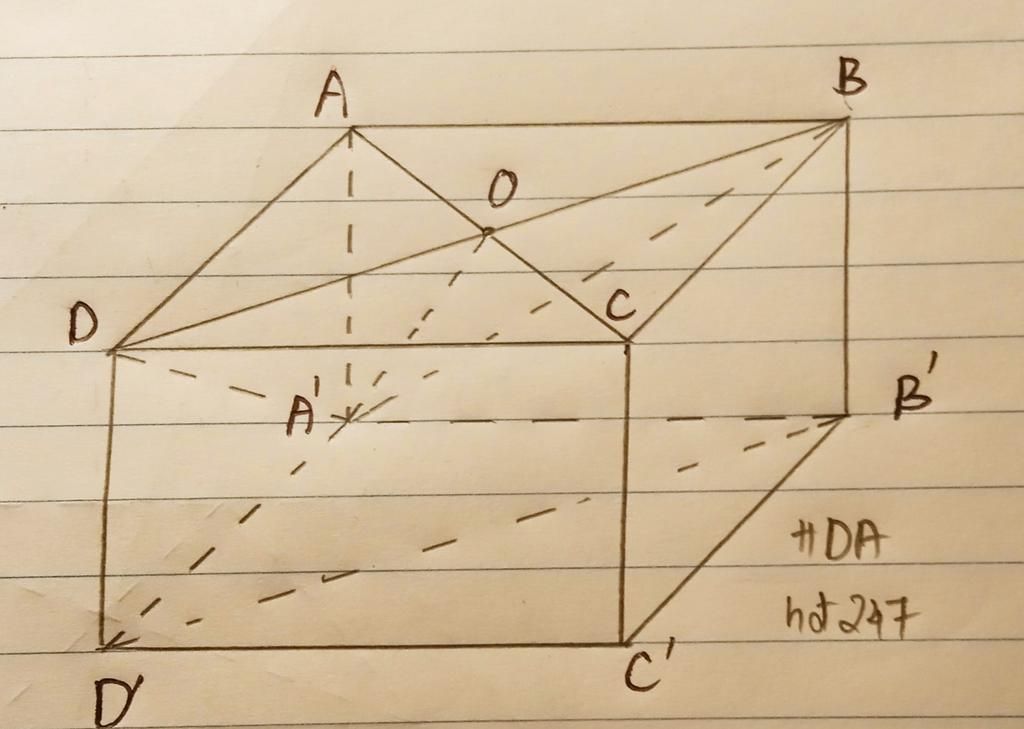 A B
O
D C
A' B'
#DA
hd247
D' C'